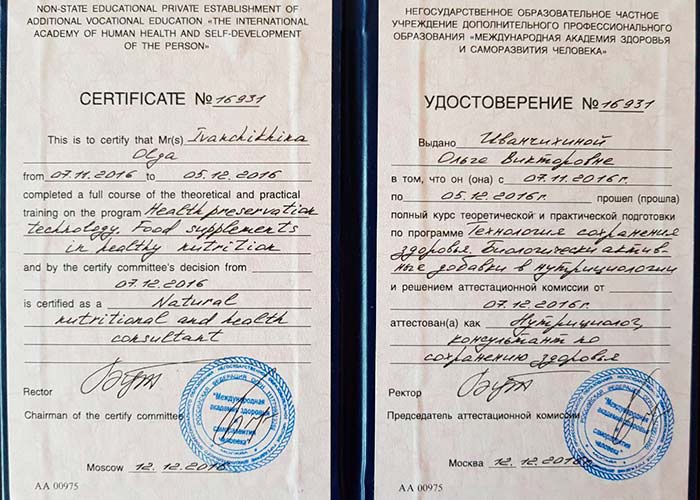 NON-STATE EDUCATIONAL PRIVATE ESTABLISHMENT OF
ADDITIONAL VOCATIONAL EDUCATION «THE INTERNATIONAL
ACADEMY OF HUMAN HEALTH AND SELF-DEVELOPMENT
OF THE PERSON»
CERTIFICATE № 16931
This is to certify that Mr(s) Ivanchikhina
Olga
from 07.11.2016 to 05.12.2016
completed a full course of the theoretical and practical
training on the program Health preservation
technology. Food supplements
in healthy nutrition
and by the certify committee's decision from
07.12.2016
is certified as a Natural
nutritional and health
consultant
Rector
Chairman of the certify committee
Moscow 12.12.2016
АА 00975
НЕГОСУДАРСТВЕННОЕ ОБРАЗОВАТЕЛЬНОЕ ЧАСТНОЕ
УЧРЕЖДЕНИЕ ДОПОЛНИТЕЛЬНОГО ПРОФЕССИОНАЛЬНОГО
ОБРАЗОВАНИЯ «МЕЖДУНАРОДНАЯ АКАДЕМИЯ ЗДОРОВЬЯ
И САМОРАЗВИТИЯ ЧЕЛОВЕКА»
УДОСТОВЕРЕНИЕ № 16931
Выдано Иванчихиной
Ольге Викторовне
в том, что он (она) с 07.11.2016г.
по 05.12.2016г. прошел (прошла)
полный курс теоретической и практической подготовки
по программе Технология сохранения
здоровья. Биологически актив-
ные добавки в нутрициологии
и решением аттестационной комиссии от
07.12.2016г.
аттестован(а) как Нутрициолог,
консультант по
сохранению здоровья
Ректор
Председатель аттестационной комиссии
Москва 12.12.2016г.
АА 00975
"Международная
академия здоровья
и
саморазвития
человека"
"Международная
академия здоровья
и
саморазвития
человека"